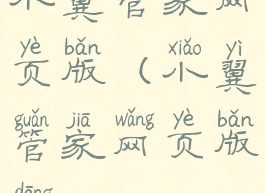 翼管家网
yè bǎn xiǎo yì
页版（小翼
guǎn jiā wǎng yè bǎn
管家网页版